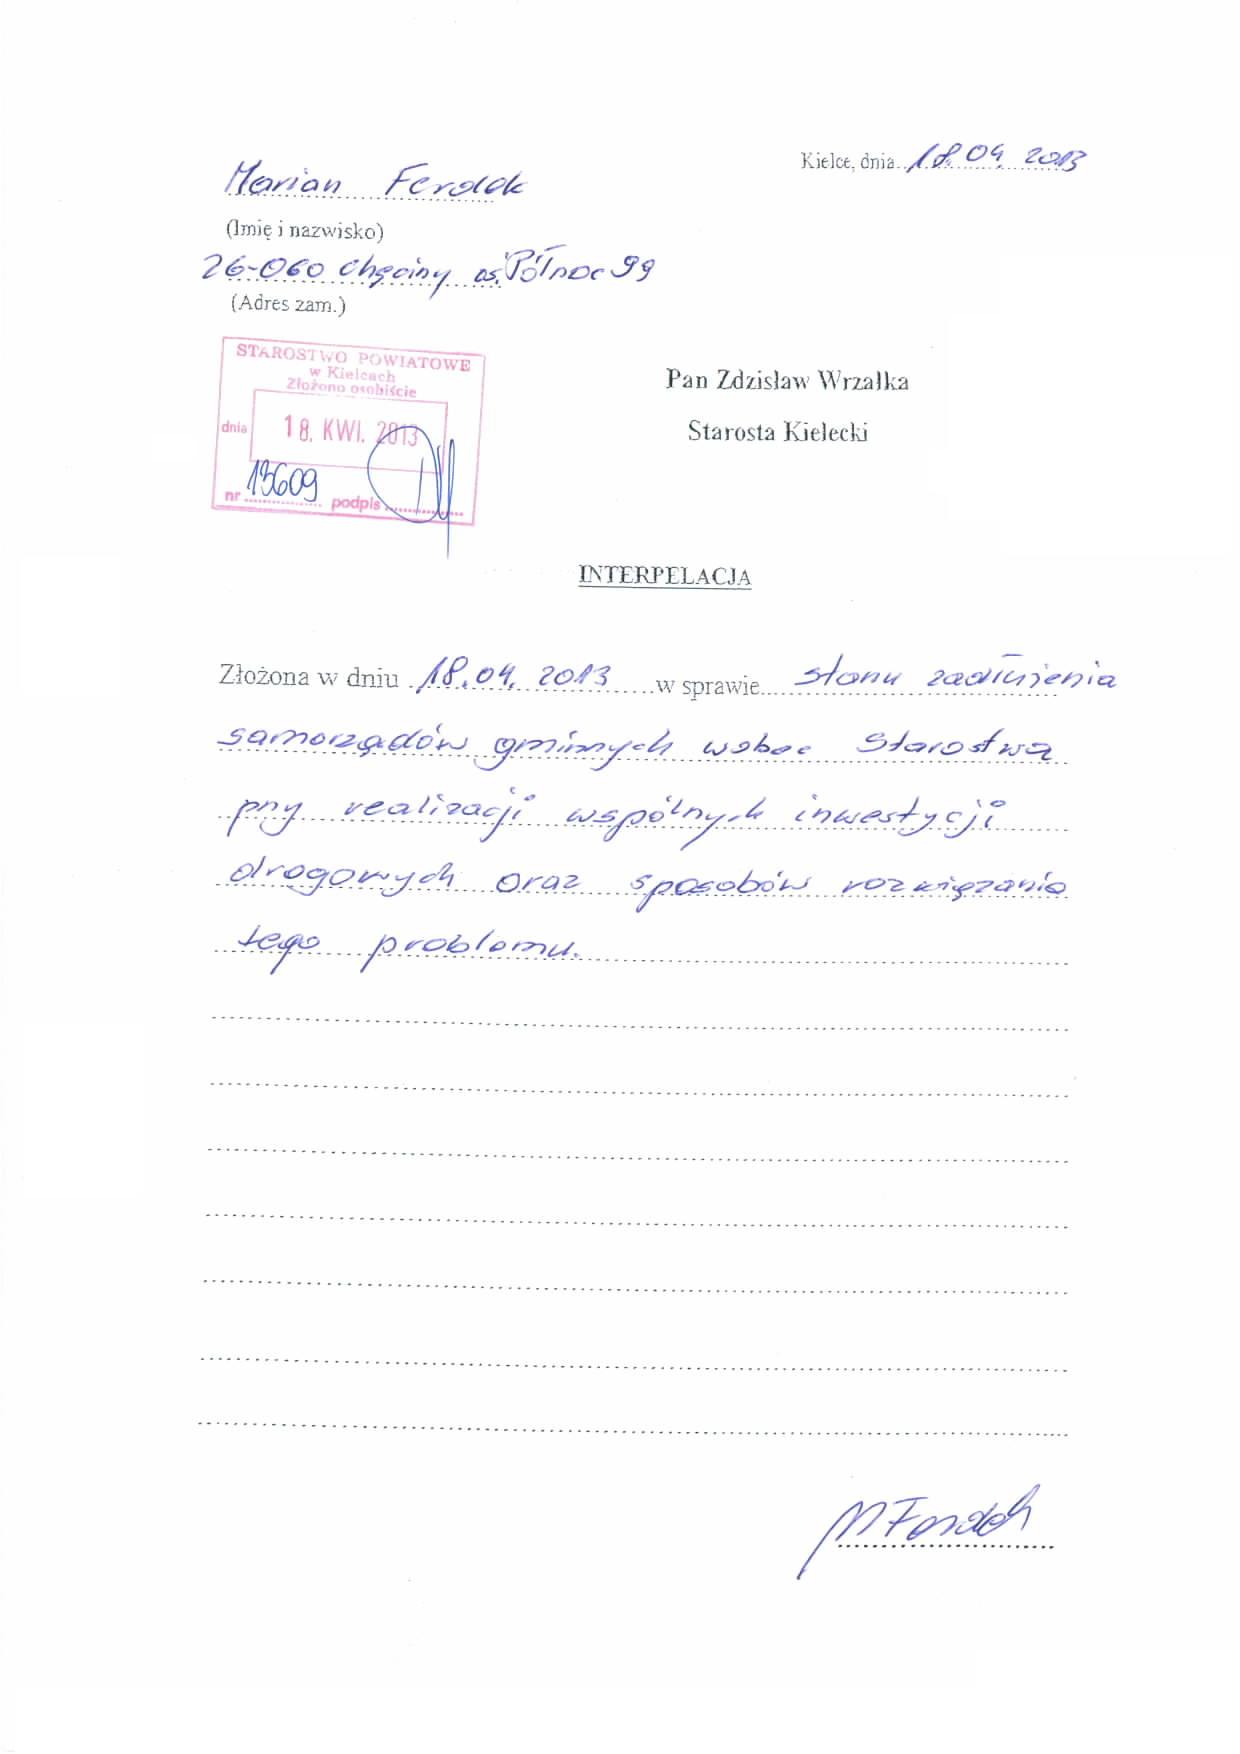 Kielce, dnia 18.04.2013
Marian Ferdek
(Imię i nazwisko)
26-060 Chęciny os. Północ 99
(Adres zam.)
STAROSTWO POWIATOWE
w Kielcach
Złożono osobiście
dnia 18. KWI. 2013
nr 13609 podpis
Pan Zdzisław Wrzałka
Starosta Kielecki
INTERPELACJA
Złożona w dniu 18.04.2013 w sprawie stanu zadłużenia
samorządów gminnych wobec Starostwa
przy realizacji wspólnych inwestycji
drogowych oraz sposobów rozwiązania
tego problemu.
M Ferdek